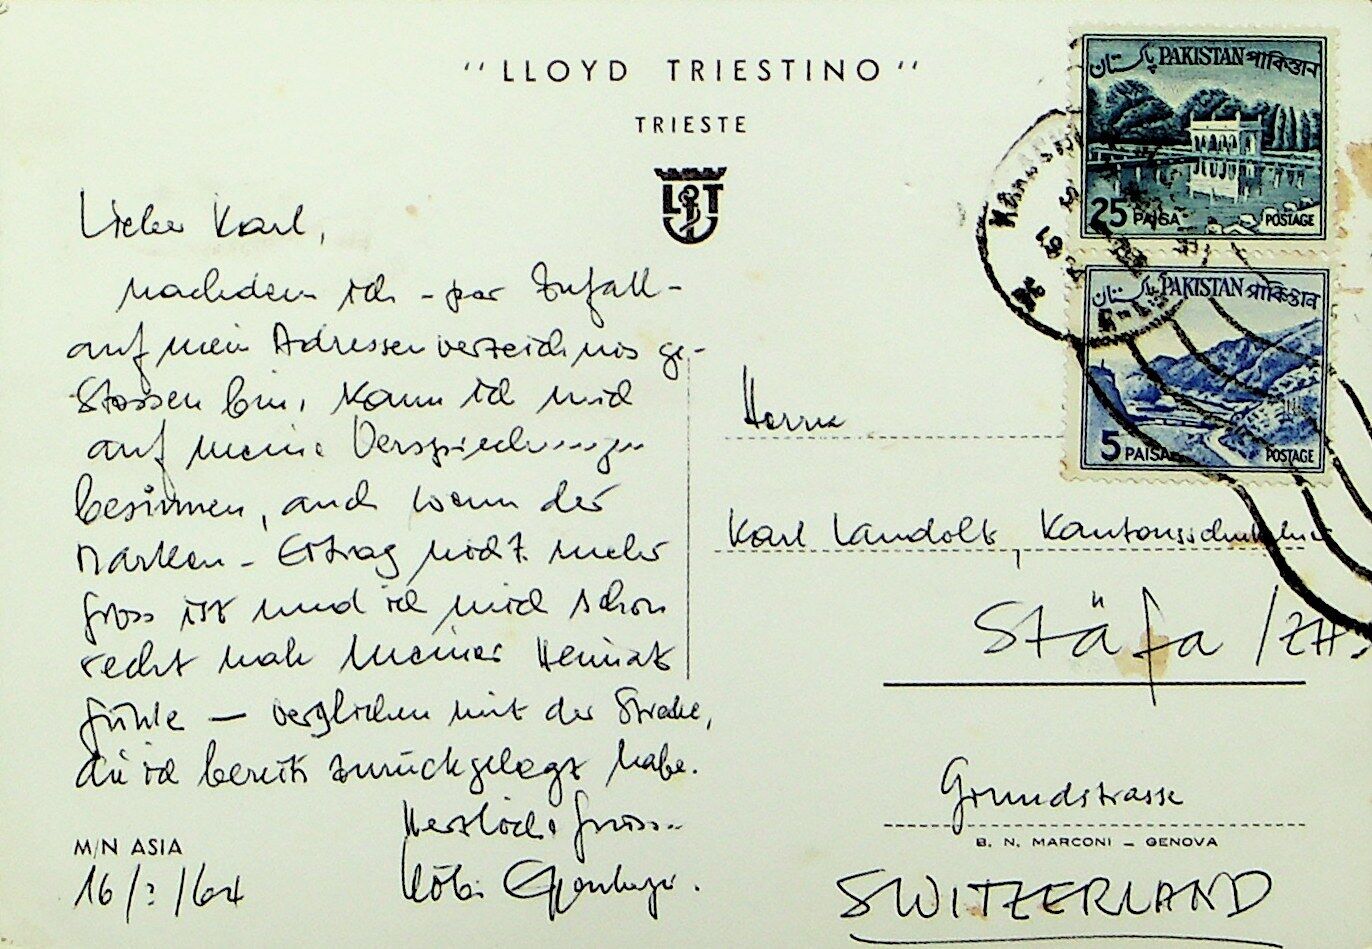 "LLOYD TRIESTINO"
TRIESTE
L T
پاکستان PAKISTAN পাকিস্তান
25 PAISA POSTAGE
پاکستان PAKISTAN পাকিস্তান
5 PAISA POSTAGE
Lieber Karl,
nachdem ich - per Zufall -
auf mein Adressenverzeichnis ge-
stossen bin, kann ich mich
auf meine Versprechungen
besinnen, auch wenn der
Marken - Ertrag nicht mehr
gross ist und ich mich schon
recht nah meiner Heimat
fühle — verglichen mit der Strecke,
die ich bereits zurückgelegt habe.
Herzliche Grüsse
Köbi
M/N ASIA
16/?/64
Herrn
Karl Landolt, Kantonsschullehrer
Stäfa /ZH
Grundstrasse
B. N. MARCONI – GENOVA
SWITZERLAND